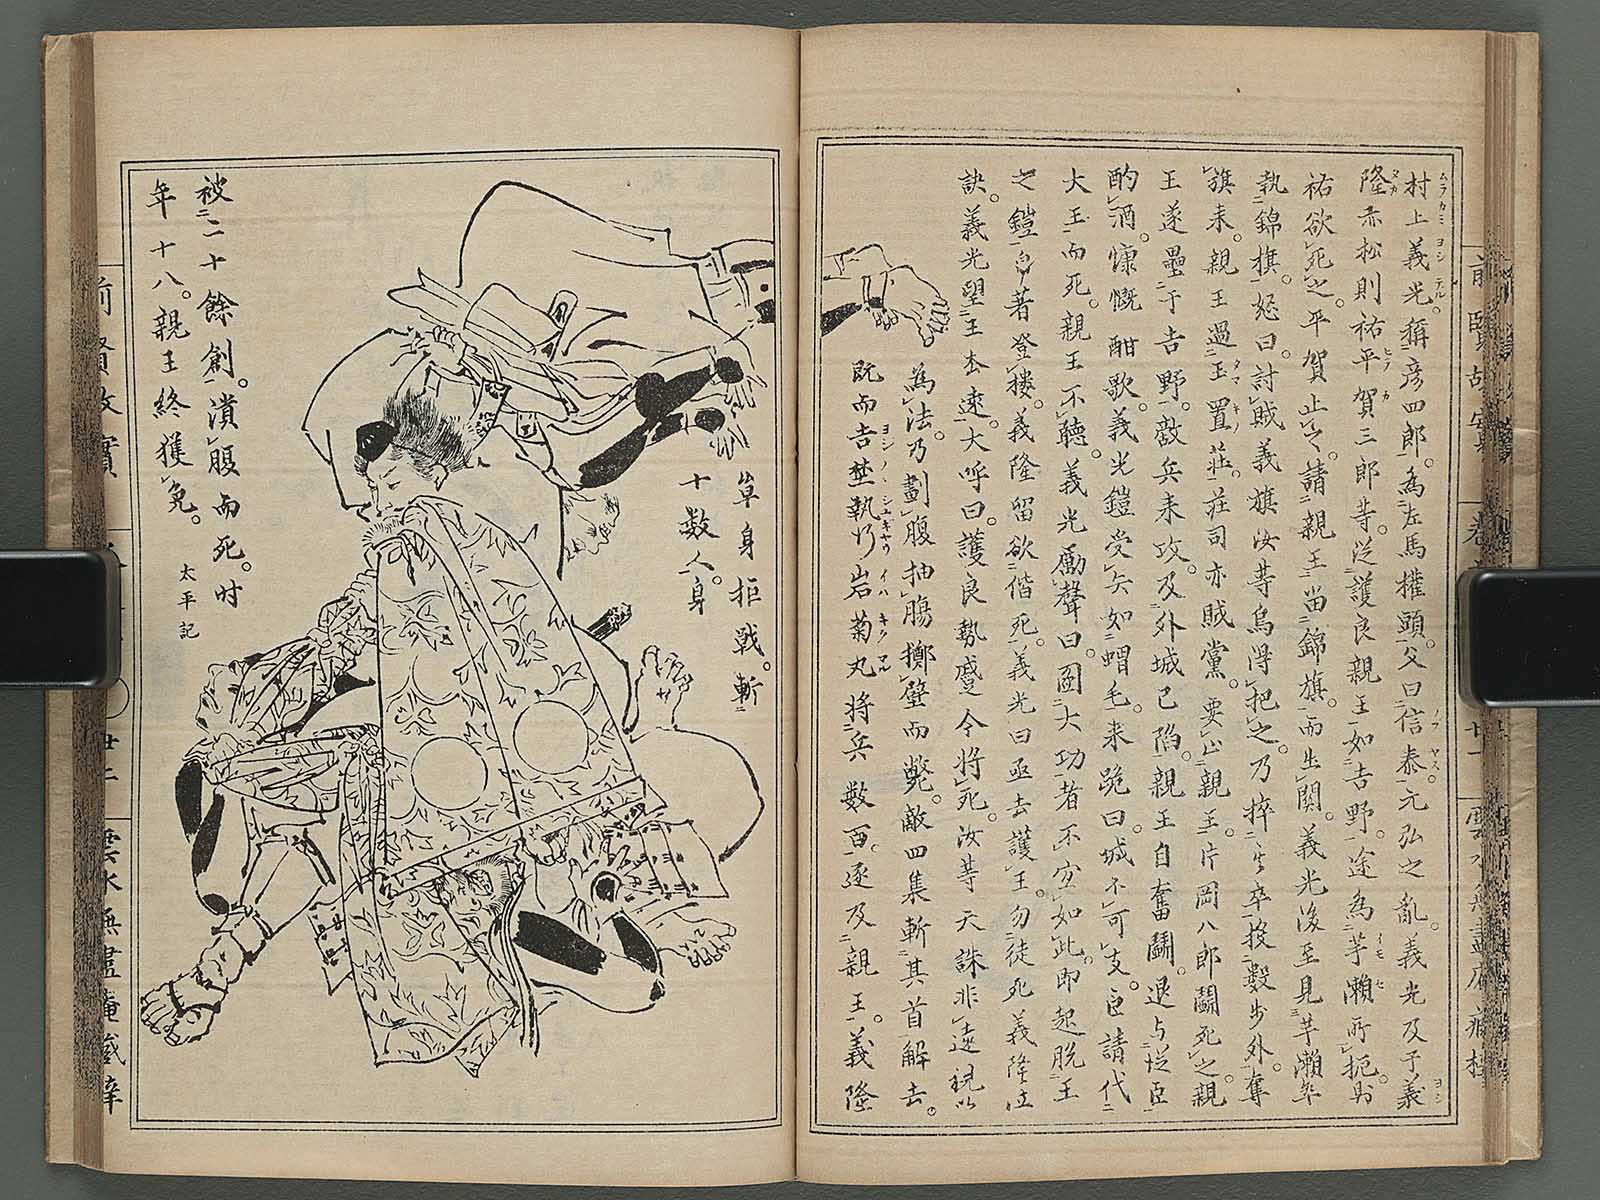 村上義光。稱彦四郎。為左馬權頭。父曰信泰。元弘之亂。義光及子義
隆赤松則祐平賀三郎等。從護良親王如吉野。途為芋瀬所扼。則
祐欲死之。平賀止之。請親王留錦旗。而出関。義光後至見芋瀬率
執錦旗。怒曰。討賊義旗汝等烏得把之。乃捽其卒投數歩外。奪
旗来。親王過玉置荘。荘司亦賊黨。要親王。片岡八郎鬪死之。親
王遂壘于吉野。敵兵来攻。及外城已陷。親王自奮鬪。退与従臣
酌酒。慷慨酣歌。義光鎧受矢如蝟毛。来跪曰。城不可支。臣請代
大王而死。親王不聽。義光勵聲曰。圖大功者不宜如此。即起脱王
之鎧自著登樓。義隆留欲偕死。義光曰亟去護王。勿徒死義隆泣
訣。義光望王去遠。大呼曰。護良勢蹙今将死。汝等天誅非遠視以
為法。乃劃腹抽腸擲壁而斃。敵四集斬其首解去。
既而吉埜執行岩菊丸将兵數百。逐及親王。義隆
単身拒戰。斬
十数人。身
被二十餘創。潰腹而死。时
年十八。親王終獲免。
太平記
前賢故實
雲水無盡庵藏梓